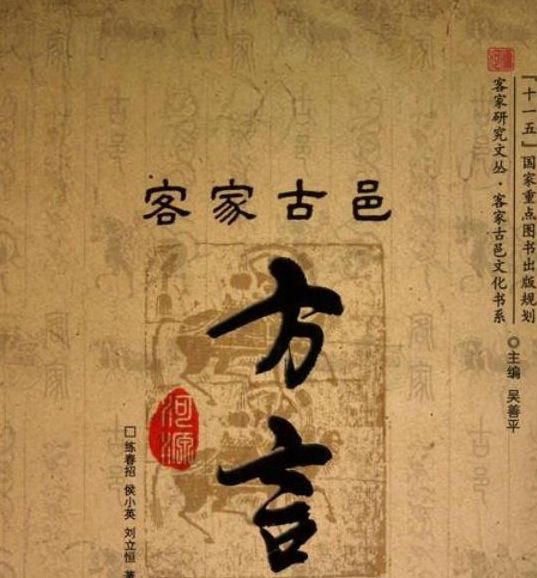 「十一五」国家重点图书出版规划
客家研究文丛·客家古邑文化书系
◎主编 吴善平
客家古邑
方言
河源
□练春招 侯小英 刘立恒 著